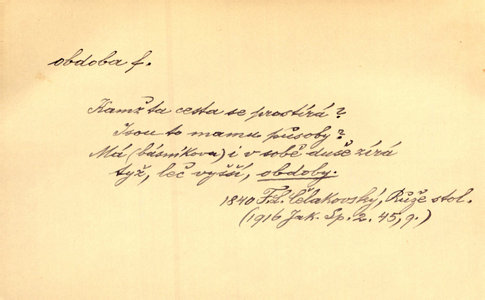 obdoba f.
Kamž ta cesta se prostírá?
Jsou to mamu působy?
Má (básníkova) i v sobě duše zírá
týž, leč vyšší, obdoby.
1840 F.L. Čelakovský, Růže stol.
(1916 Jak. Sp. 2. 45, 9.)